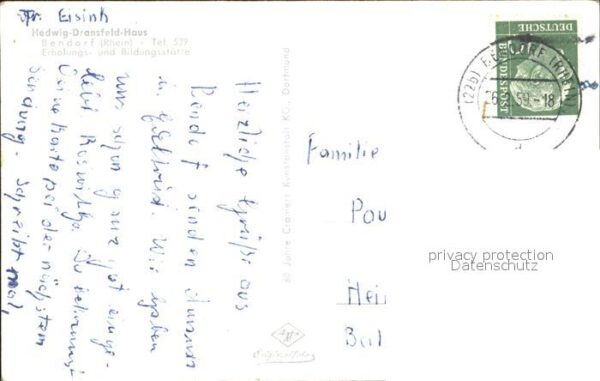 Fr. Eisink
Hedwig-Dransfeld-Haus
Bendorf (Rhein) · Tel. 529
Erholungs- und Bildungsstätte
Herzliche Grüße aus
Bendorf senden
in Wir haben
uns schon ganz gut einge-
lebt. Du bekommst
Deine Karte bei der nächsten
Sendung. Schreibt mal,
60 Jahre Cramers Kunstanstalt KG., Dortmund
Originalfoto
DEUTSCHE
BUNDESPOST
(22b) BENDORF (RHEIN)
59.-18
Familie
Pau
Hei
Bad
privacy protection
Datenschutz